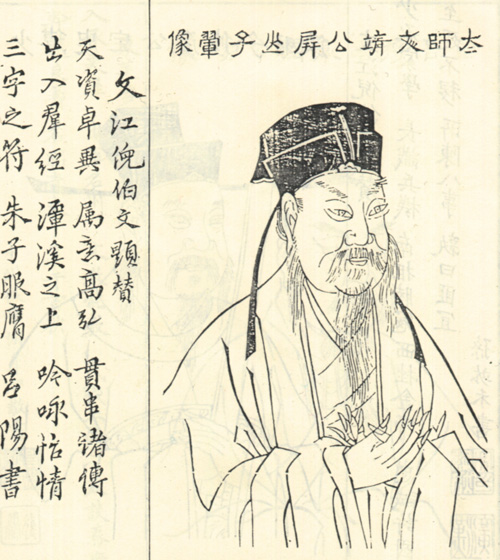 太師文靖公屏山子翬像
文江倪伯文顕賛
天資卓異 属意高弘 貫串诸傳
出入羣經 潭溪之上 吟咏怡情
三字之符 朱子服膺 吕陽書